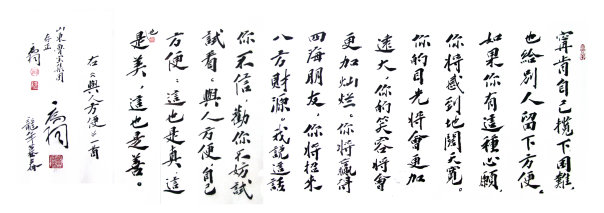 寧肯自己攬下困難，
也給別人留下方便。
如果你有這種心願，
你將感到地闊天寬。
你的目光將會更加
遠大，你的笑容將會
更加燦爛。你將贏得
四海朋友，你將招來
八方財源。我說這話
你不信，勸你不妨試
試看：與人方便，自己
方便；這也是真，這
也是美，這也是善。
右《與人方便》一首